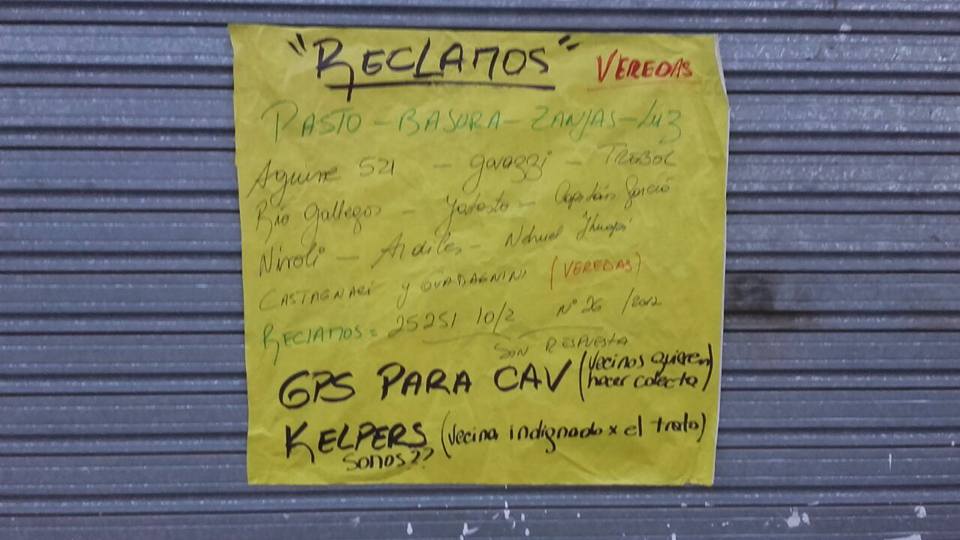 "RECLAMOS" VEREDAS
PASTO - BASURA - ZANJAS - LUZ
Aguirre 521 - Gavazzi - TREBOL
Río Gallegos - Yatasto - Capitán García
Niroli - Ardiles - Nahuel Huapi
CASTAGNARI y GUADAGNINI (VEREDAS)
RECLAMOS = 25251 10/2 N° 26 /2012
SON RESPUESTA
GPS PARA CAV (vecinos quieren
hacer colecta)
KELPERS (vecina indignado x el trato)
SOMOS??